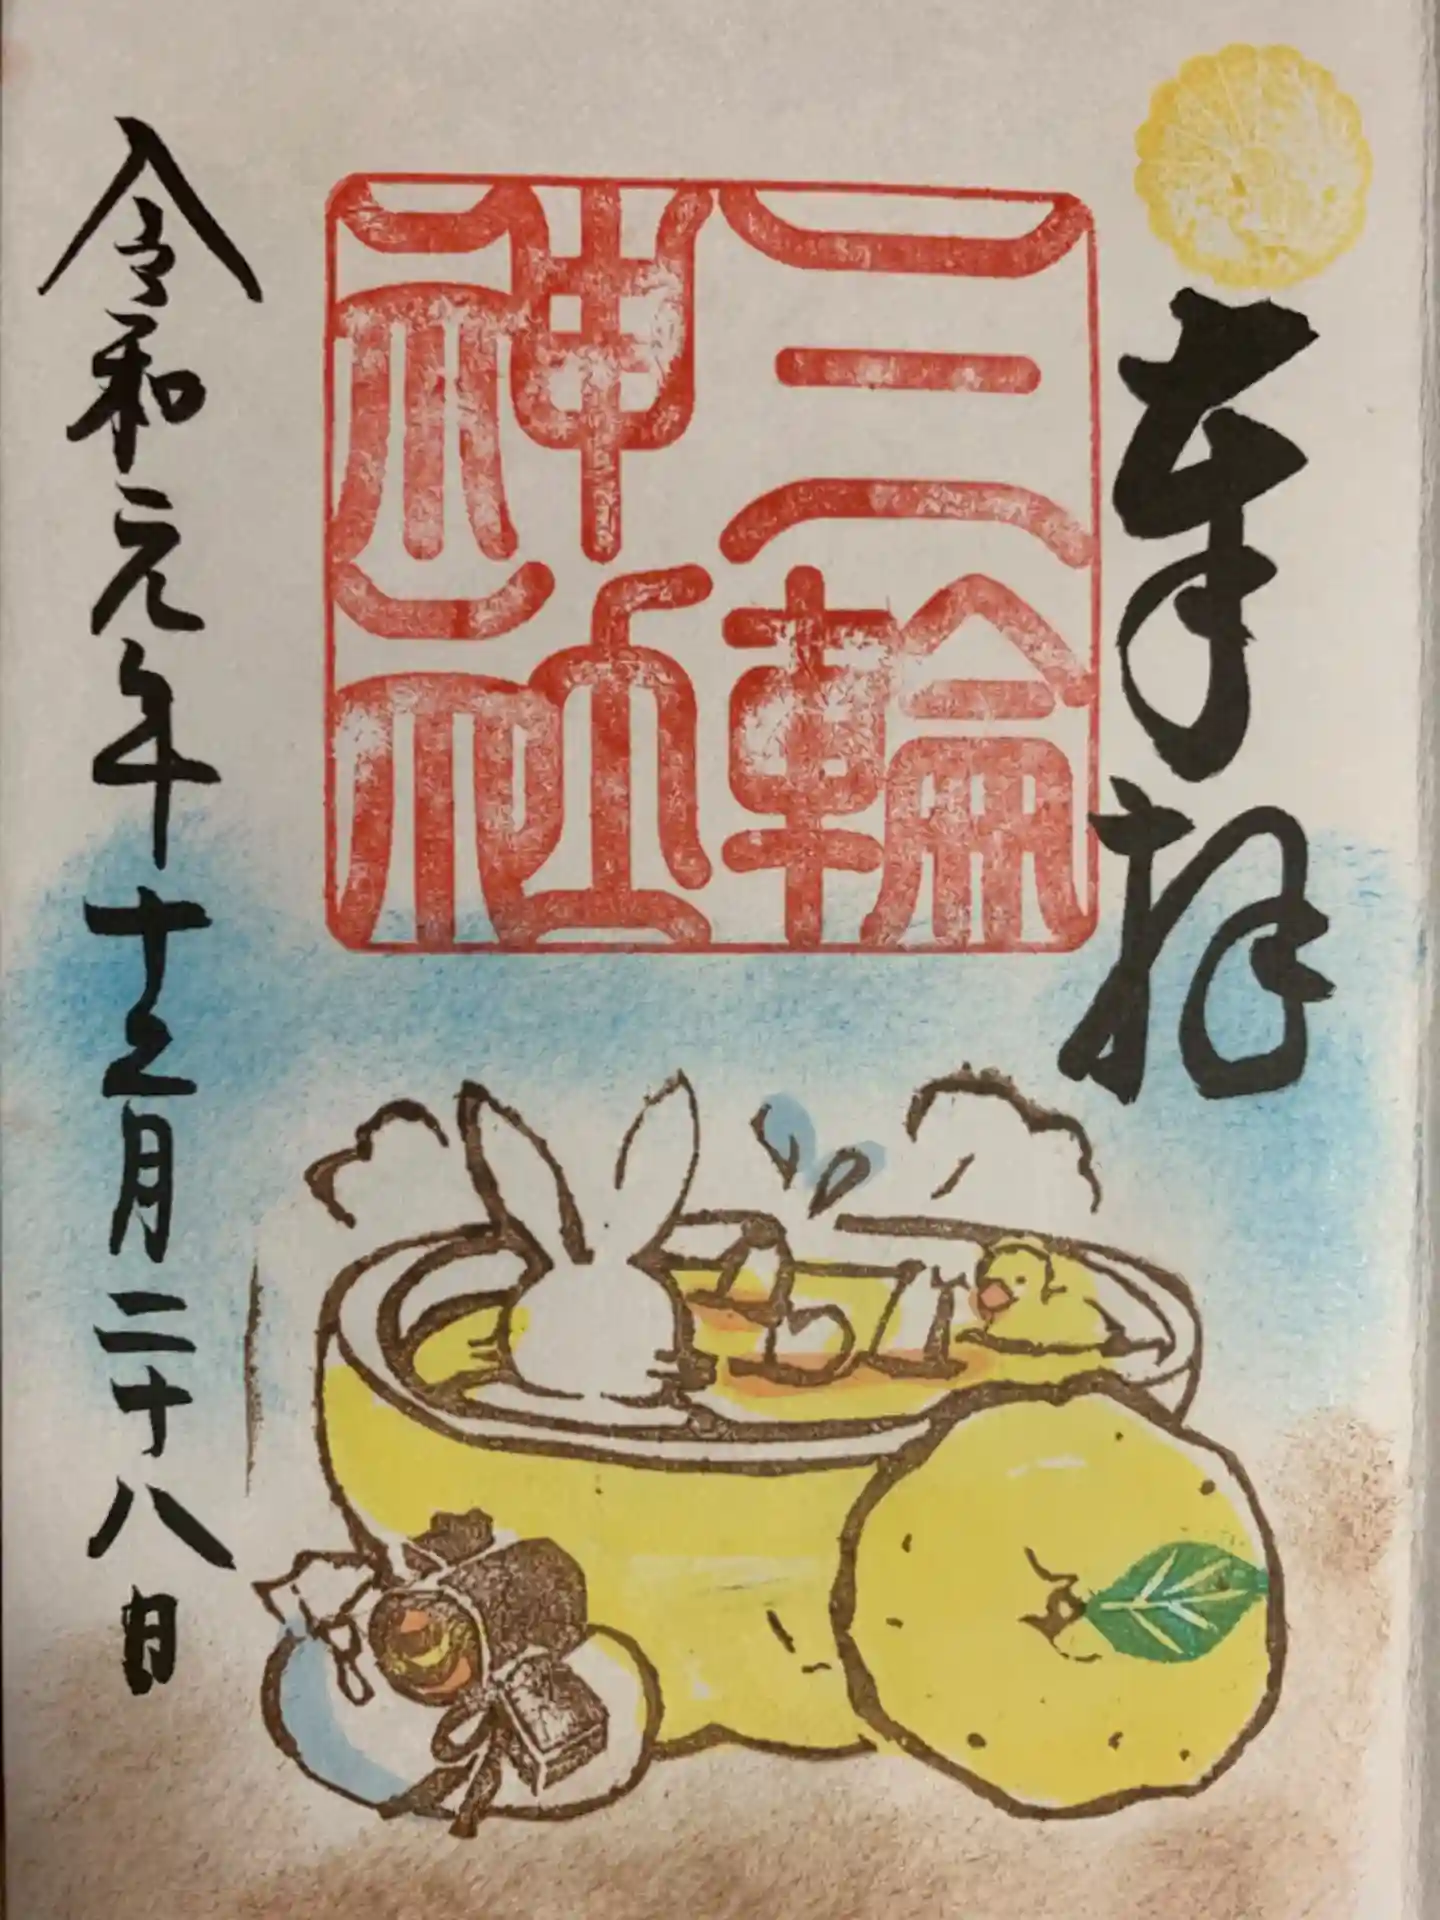 奉拝
三輪
神社
令和元年十二月二十八日